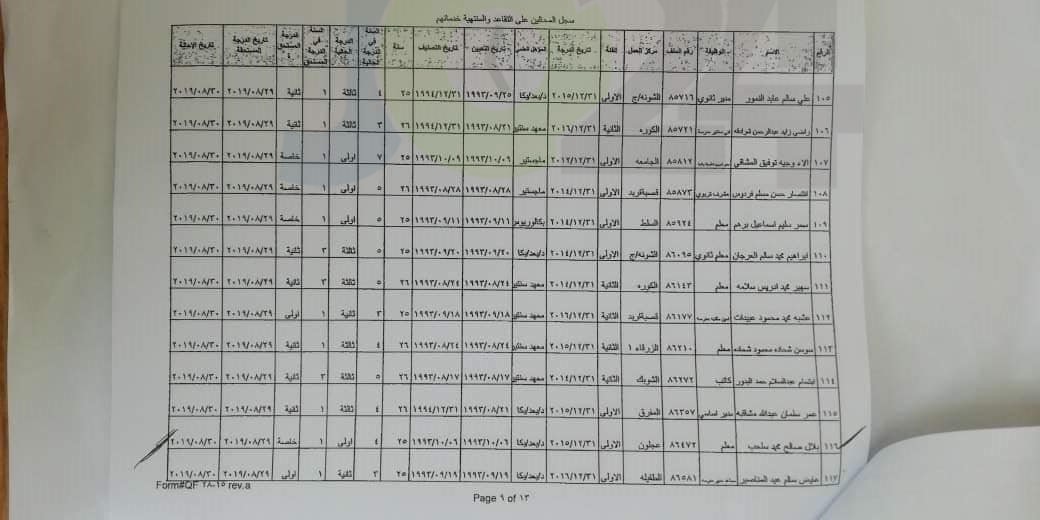 سجل المحالين على التقاعد والمنتهية خدماتهم
الرقم الاسم الوظيفة رقم الملف مركز العمل الفئة تاريخ الدرجة المؤهل العلمي تاريخ التعيين تاريخ التصنيف سنة السنة في الدرجة الحالية الدرجة الحالية السنة في الدرجة المستحق الدرجة المستحق تاريخ الدرجة المستحقة تاريخ الاحالة
١٠٥ علي سالم عايد النمور مدير ثانوي ٨٥٧١٦ الشونه/ج الاولى ٢٠١٥/١٢/٣١ د/بعد/بكا ١٩٩٣/٠٩/٢٥ ١٩٩٤/١٢/٣١ ٢٥ ٤ ثالثة ١ ثانية ٢٠١٩/٠٨/٢٩ ٢٠١٩/٠٨/٣٠
١٠٦ راضي زايد عبدالرحمن ٨٥٧٢١ الكوره الثانية ٢٠١٦/١٢/٣١ معهد سنتين ١٩٩٣/٠٨/٢١ ١٩٩٤/١٢/٣١ ٢٦ ٣ ثالثة ١ ثانية ٢٠١٩/٠٨/٢٩ ٢٠١٩/٠٨/٣٠
١٠٧ الاء وجيه توفيق المشاقي ٨٥٨١٢ الجامعه الاولى ٢٠١٢/١٢/٣١ ماجستير ١٩٩٣/١٠/٠٦ ١٩٩٣/١٠/٠٩ ٢٥ ٧ اولى ١ خاصة ٢٠١٩/٠٨/٢٩ ٢٠١٩/٠٨/٣٠
١٠٨ انتصار حسن مسلم فردوس مشرف تربوي ٨٥٨٧٣ قصبة اربد الاولى ٢٠١٤/١٢/٣١ ماجستير ١٩٩٣/٠٨/٢٨ ١٩٩٣/٠٨/٢٨ ٢٦ ٥ اولى ١ خاصة ٢٠١٩/٠٨/٢٩ ٢٠١٩/٠٨/٣٠
١٠٩ سمر سليم اسماعيل برهم معلم ٨٥٩٢٤ السلط الاولى ٢٠١٤/١٢/٣١ بكالوريوس ١٩٩٣/٠٩/١١ ١٩٩٣/٠٩/١١ ٢٥ ٥ اولى ١ خاصة ٢٠١٩/٠٨/٢٩ ٢٠١٩/٠٨/٣٠
١١٠ ابراهيم محمد سالم العرجان معلم ثانوي ٨٦٠٩٥ الشونه/ج الاولى ٢٠١٤/١٢/٣١ د/بعد/بكا ١٩٩٣/٠٩/٢٠ ١٩٩٣/٠٩/٢٠ ٢٥ ٥ ثالثة ٣ ثانية ٢٠١٩/٠٨/٢٩ ٢٠١٩/٠٨/٣٠
١١١ سهير محمد ادريس سلامه معلم ٨٦١٤٣ الكوره الثانية ٢٠١٤/١٢/٣١ معهد سنتين ١٩٩٣/٠٨/٢٤ ١٩٩٣/٠٨/٢٤ ٢٦ ٥ ثالثة ٣ ثانية ٢٠١٩/٠٨/٢٩ ٢٠١٩/٠٨/٣٠
١١٢ محمد محمود عبيدات ٨٦١٧٧ قصبة اربد الثانية ٢٠١٦/١٢/٣١ معهد سنتين ١٩٩٣/٠٩/١٨ ١٩٩٣/٠٩/١٨ ٢٥ ٣ ثانية ١ اولى ٢٠١٩/٠٨/٢٩ ٢٠١٩/٠٨/٣٠
١١٣ سوسن شحاده محمود شحاده معلم ٨٦٢١٠ الزرقاء ١ الثانية ٢٠١٥/١٢/٣١ معهد سنتين ١٩٩٣/٠٨/٢٤ ١٩٩٣/٠٨/٢٤ ٢٦ ٤ ثالثة ١ ثانية ٢٠١٩/٠٨/٢٩ ٢٠١٩/٠٨/٣٠
١١٤ ابتسام عبدالسلام حمد البدور كاتب ٨٦٢٧٢ الشوبك الثانية ٢٠١٤/١٢/٣١ معهد سنتين ١٩٩٣/٠٨/١٧ ١٩٩٣/٠٨/١٧ ٢٦ ٥ ثالثة ٣ ثانية ٢٠١٩/٠٨/٢٩ ٢٠١٩/٠٨/٣٠
١١٥ عمر سلمان عبدالله مشاقبه مدير اساسي ٨٦٣٥٧ المفرق الاولى ٢٠١٥/١٢/٣١ د/بعد/بكا ١٩٩٣/٠٨/٢١ ١٩٩٤/١٢/٣١ ٢٦ ٤ ثالثة ١ ثانية ٢٠١٩/٠٨/٢٩ ٢٠١٩/٠٨/٣٠
١١٦ بلال صالح محمد سلحب معلم ٨٦٤٧٢ عجلون الاولى ٢٠١٥/١٢/٣١ د/بعد/بكا ١٩٩٣/١٠/٠٦ ١٩٩٣/١٠/٠٦ ٢٥ ٤ اولى ١ خاصة ٢٠١٩/٠٨/٢٩ ٢٠١٩/٠٨/٣٠
١١٧ عايض سالم عبد المناصير ٨٦٥٨١ الطفيله الاولى ٢٠١٦/١٢/٣١ د/بعد/بكا ١٩٩٣/٠٩/١٩ ١٩٩٣/٠٩/١٩ ٢٥ ٣ ثانية ١ اولى ٢٠١٩/٠٨/٢٩ ٢٠١٩/٠٨/٣٠
Form#QF ٢٨-١٥ rev.a
Page ٩ of ١٣